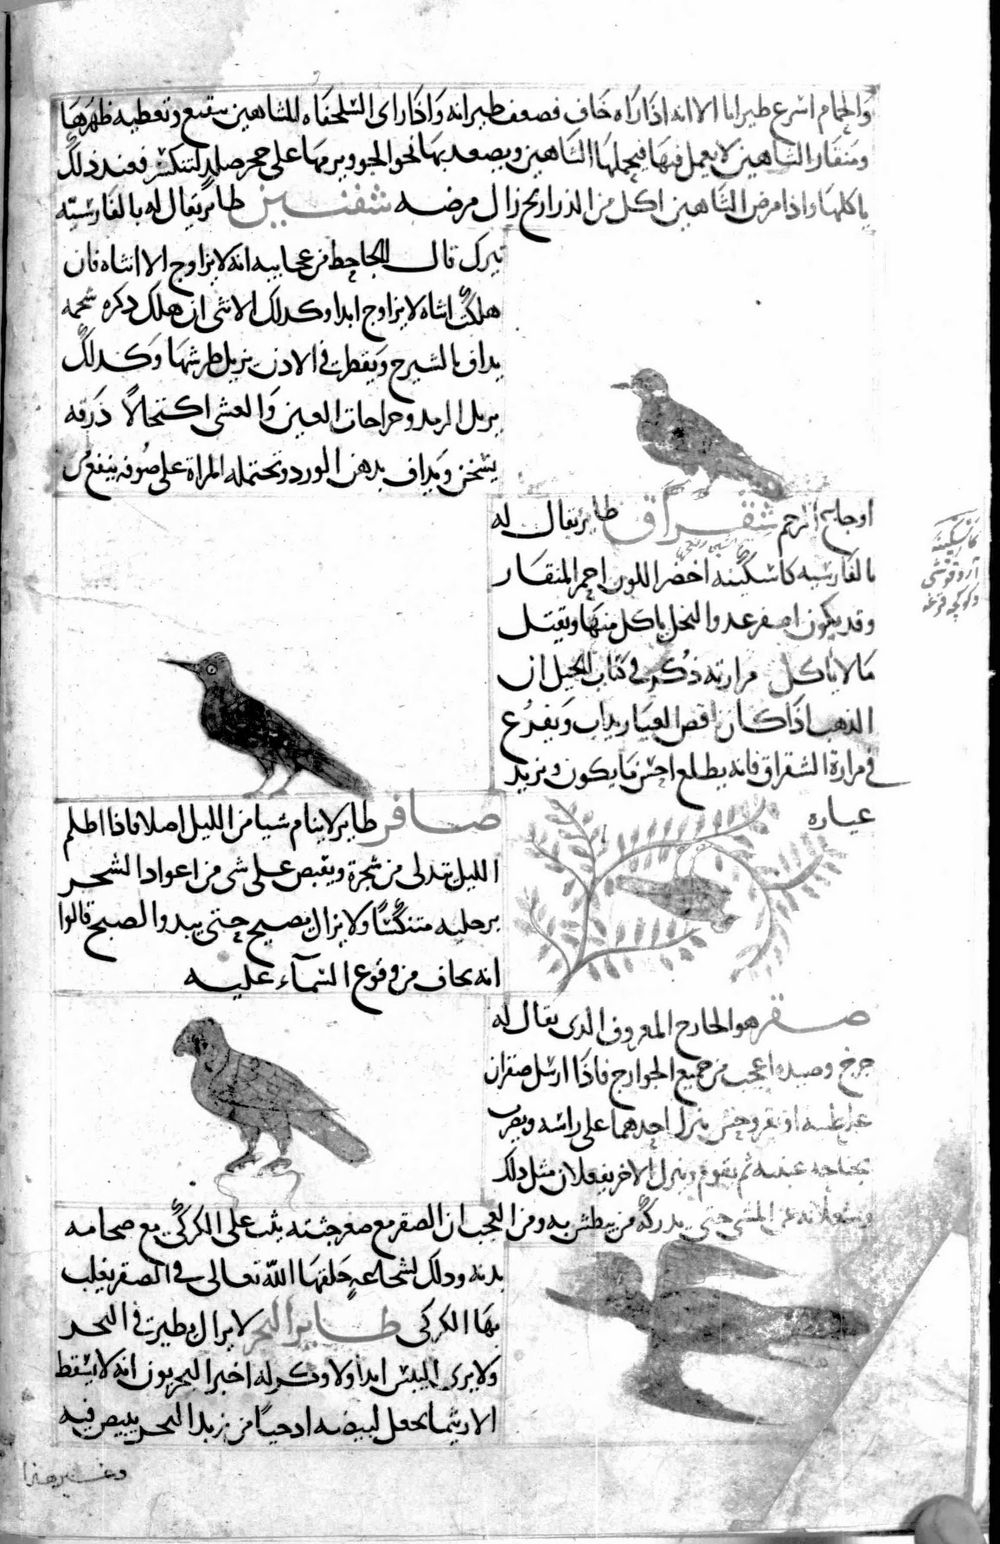 والحمام اسرع طيرانا الا انه اذا راه خاف فضعف طيرانه واذا راى السلحفاه للشاهين وتعطيه ظهرها
ومنقار الشاهين لا يعمل فيها فيحملها الشاهين ويصعد بها نحو الجو ويرميها على حجر صلد لتنكسر فعند ذلك
ياكلها واذا مرض الشاهين اكل من الذراريح زال مرضه شفنين طاير يقال له بالفارسيه
تيرك قال الجاحظ من عجايبه انه لا يزاوج الا انثاه فان
هلكت انثاه لا يزاوج ابدا وكدلك الانثى ان هلك دكره شحمه
يداف بالشيرج ويقطر في الادن يزيل طرشها وكدلك
يزيل الرمد وجراحات العين والعشى اكتحالا ذرقه
يسخن ويداف بدهن الورد وتحتمله المراة على صوفه ينفع من
اوجاع الرحم شقراق طاير يقال له
بالفارسيه كاسكينه اخضر اللون احمر المنقار
وقد يكون اصفر عدو النحل ياكل منها ويقتل
ما لا ياكل مرارته ذكر في كتاب الحيل ان
الذهب اذا كان ناقص العيار يذاب ويفرغ
في مرارة الشقراق فانه يطلع احسن ما يكون ويزيد
عياره
كاسكينه
صافر طاير لا ينام شيا من الليل اصلا فاذا اظلم
الليل تدلى من شجرة ويقبض على شى من اعواد الشجر
برجليه متنكسا ولا يزال يصيح حتى يبدوا الصبح قالوا
انه يخاف من وقوع السمآء عليه
صقر هو الجارح المعروف الدى يقال له
جرخ وصيده اعجب من جميع الجوارح فاذا ارسل صقران
على ظبيه او بقر وحش نزل احدهما على راسه ويضرب
بجناحه عينيه ثم يقوم وينزل الاخر يفعلان مثل دلك
ويشغلانه عن المشى حتى يدركه من يبطش به ومن العجب ان الصقر مع صغر جثته يثب على الكركى مع ضخامه
بدنه ودلك لشجاعه خلقها الله تعالى في الصقر يغلب
بها الكركى طاير البحر لا يزال يطير في البحر
ولا يرى اليبس ابدا ولا وكر له اخبر البحريون انه لا يسقط
الا ريثما يجعل لبيضه ادحيا من زبد البحر يبيض فيه
وغير هذا